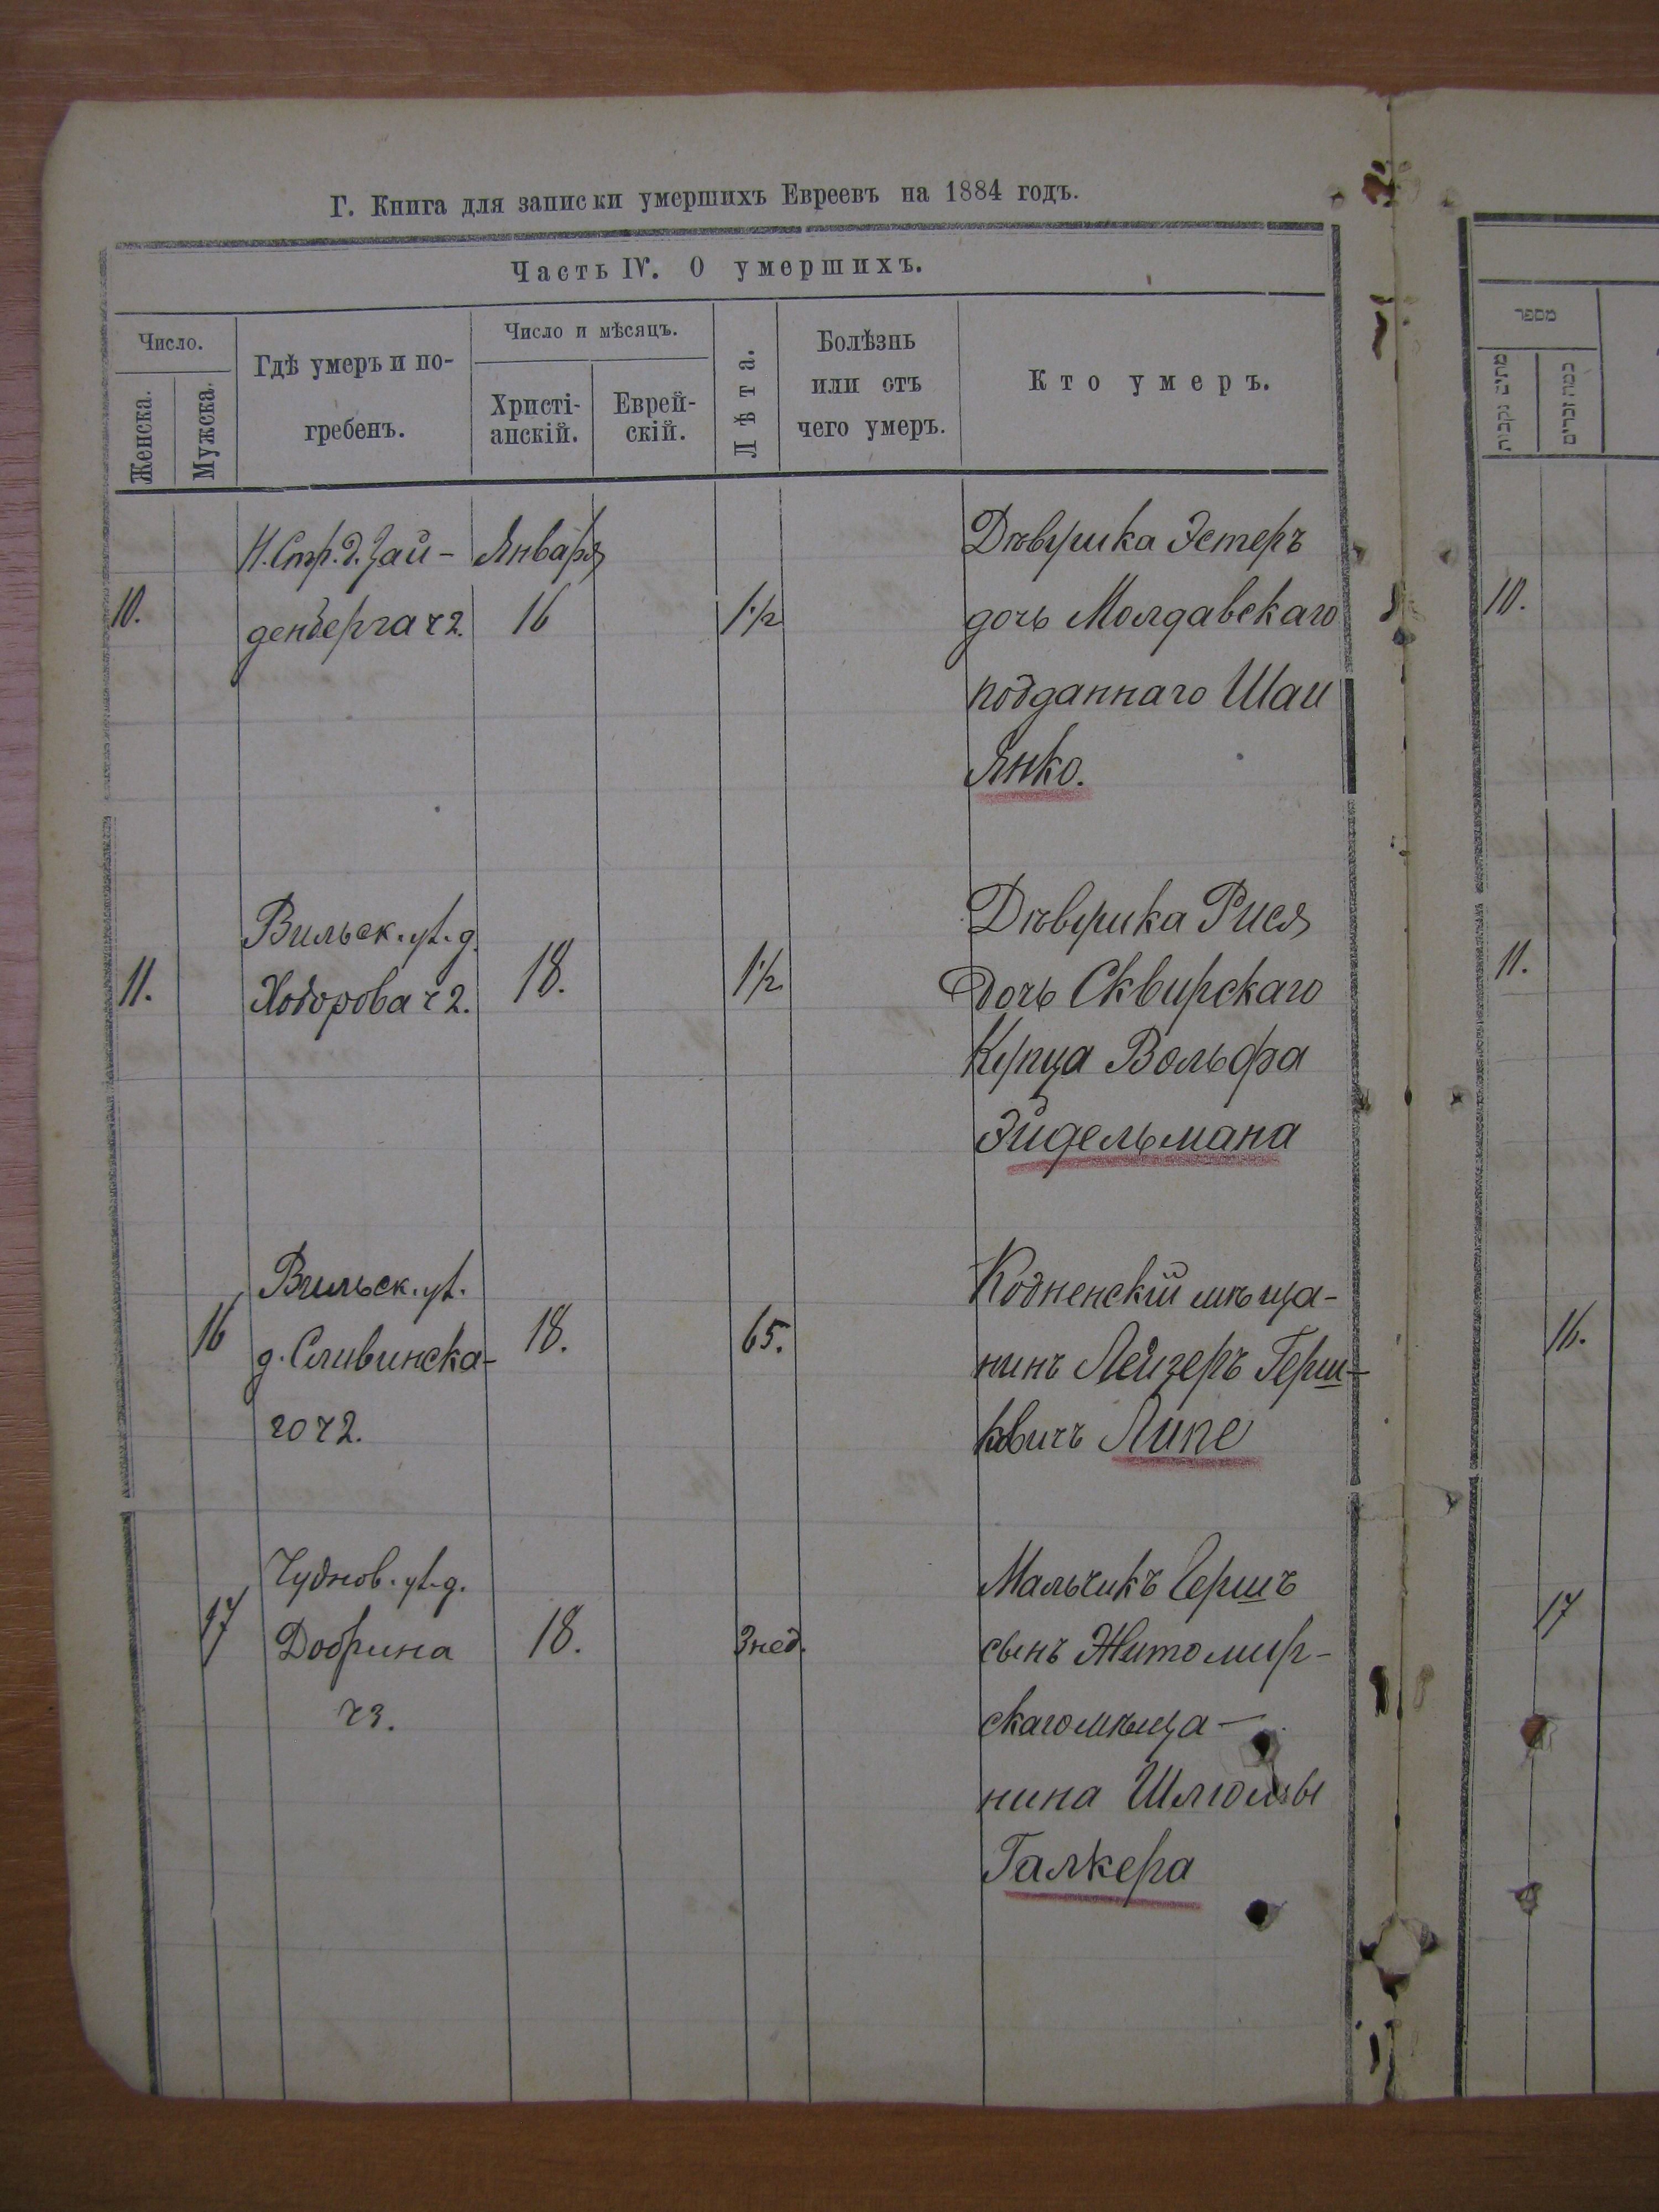 Г. Книга для записки умершихъ Евреевъ на 1884 годъ.
Часть IV. О умершихъ.
Число.
Женска.
Мужска.
Гдѣ умеръ и по-
гребенъ.
Число и мѣсяцъ.
Христі-
анскій.
Еврей-
скій.
Лѣта.
Болѣзнь
или отъ
чего умеръ.
Кто умеръ.
Н. Стр. д. Зай-
денберга ч 2.
10.
Января
16
1 1/2
Дѣвушка Эстеръ
дочь Молдавскаго
подданнаго Шаи
Янко.
11.
Вильск. ул. д.
Ходорова ч 2.
18.
1 1/2
Дѣвушка Рися
дочь Сквирскаго
Купца Вольфа
Эйдельмана
16
Вильск. ул.
д. Сливинска-
го ч 2.
18.
65.
Кодненскій мѣща-
нинъ Лейзеръ Герш-
ковичъ Липе
17
Чуднов. ул. д.
Добрина
ч 3.
18.
3 нед.
Мальчикъ Гершъ
сынъ Житомир-
скаго мѣща-
нина Шлюмы
Галкера
מספר
מתים נקבות
כמה זכרים
10.
11.
16.
17